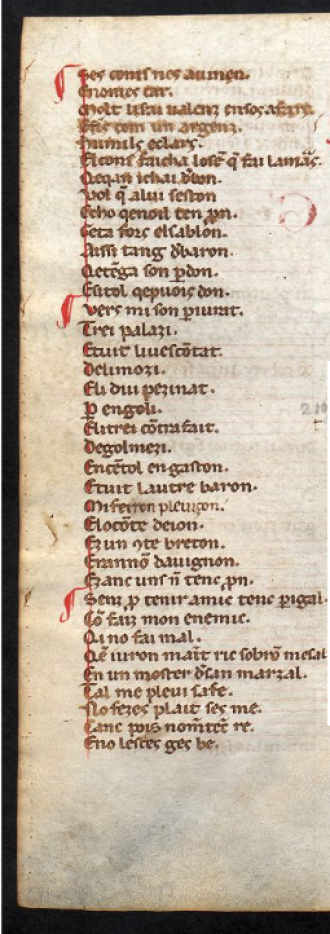 Ses conis nes aumen.
Enomes car.
Molt lifai ualenz ensos afars.
Efis com un argenz.
Humils eclars.
Elcons faicha lose q̃ fai lamars.
Qeqan ichai dbon.
Pol q̃ alui seston
Echo qenoil ten pn.
Geta fors elsablon.
Aissi tang dbaron.
Qetẽga son pdon.
Esitol qepuois don.
Vers mi son piurat.
Trei palazi.
Etuit liuescõtat.
Delimozi.
Eli dui pezinat.
P engoli.
Elitrei cõtrafait.
Degolmezi.
Encẽtol engaston.
Etuit lautre baron.
Mifeiron pleuizon.
Elocõte deion.
Ezun 9te breton.
Erannõ dauignon.
Ezanc uns ñ tenc pn.
Senz p tenir amic tenc pigal.
Cõ faiz mon enemic.
Qi no fai mal.
Qẽ iuron maĩt ric sobrõ mesal
En un mostier dsan marzal.
Tal me pleui safe.
No fezes plait ses me.
Canc pois nomtẽc re.
Eno lestes ges be.